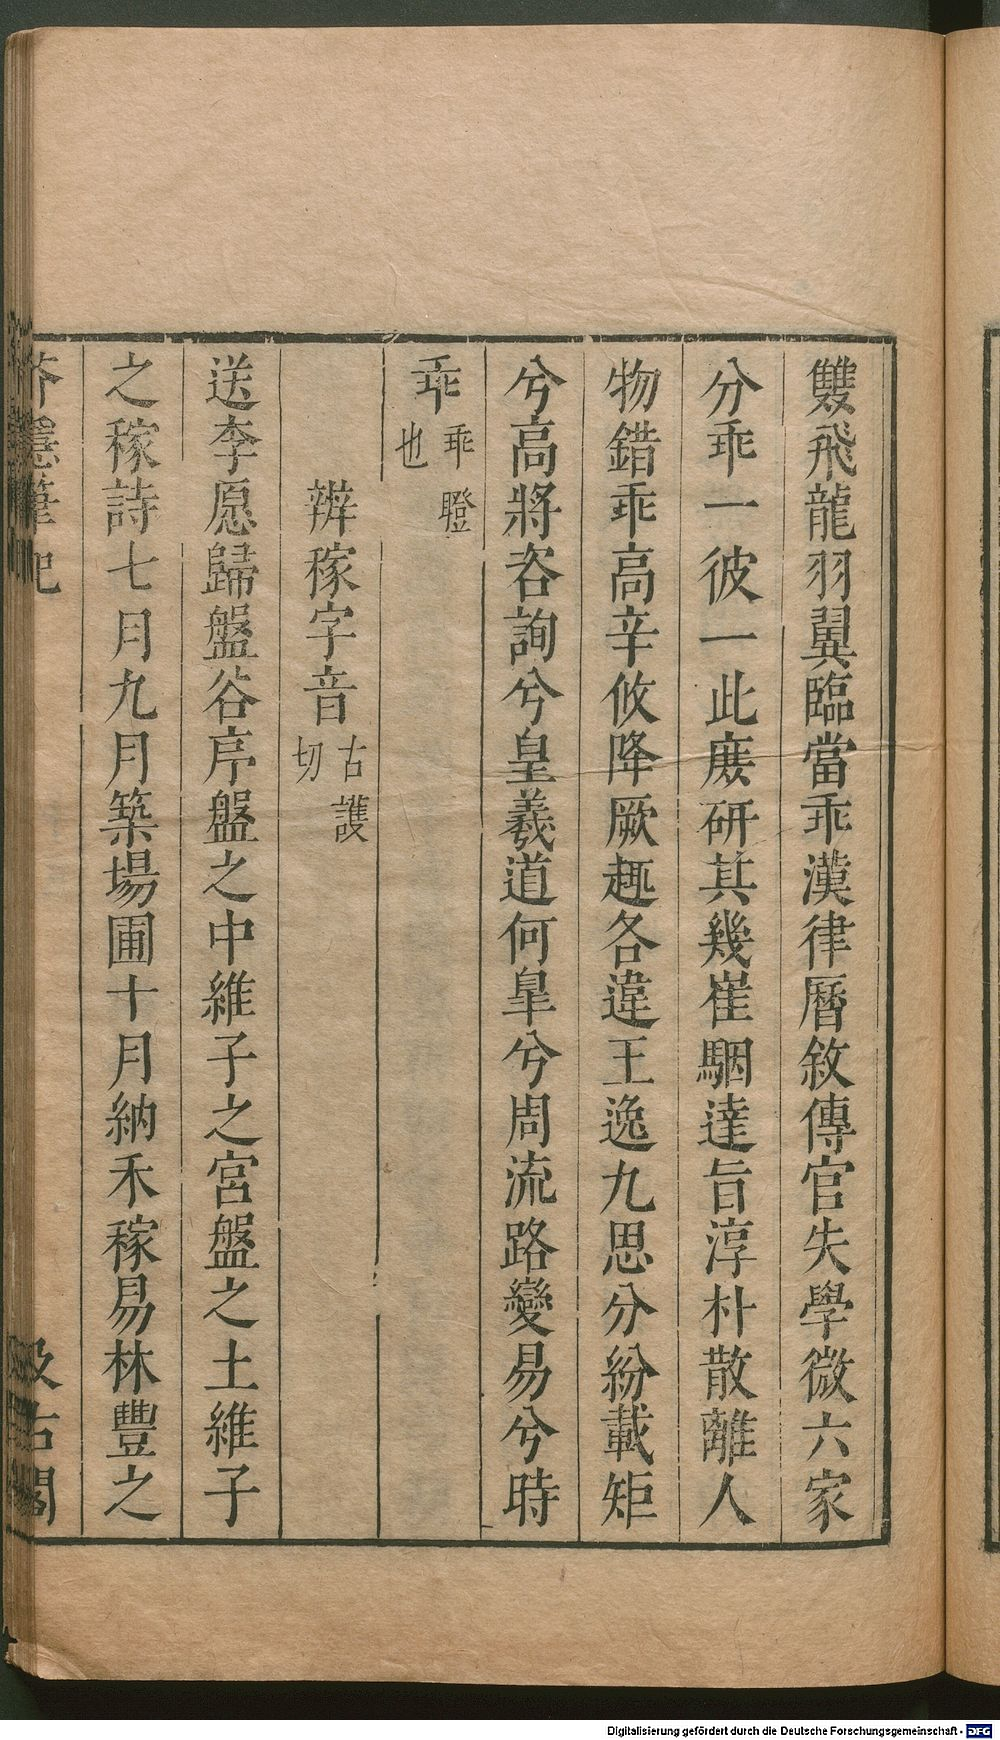 雙飛龍羽翼臨當乖漢律曆敘傳官失學微六家
分乖一彼一此庻研其幾崔駰達旨淳朴散離人
物錯乖高辛攸降厥趣各違王逸九思分紛載矩
兮高將咨詢兮皇羲道何臯兮周流路變易兮時
乖乖瞪也
辨稼字音古護切
送李愿歸盤谷序盤之中維子之宮盤之土維子
之稼詩七月九月築場圃十月納禾稼易林豐之
芥隱筆記
汲古閣
Digitalisierung gefördert durch die Deutsche Forschungsgemeinschaft - DFG